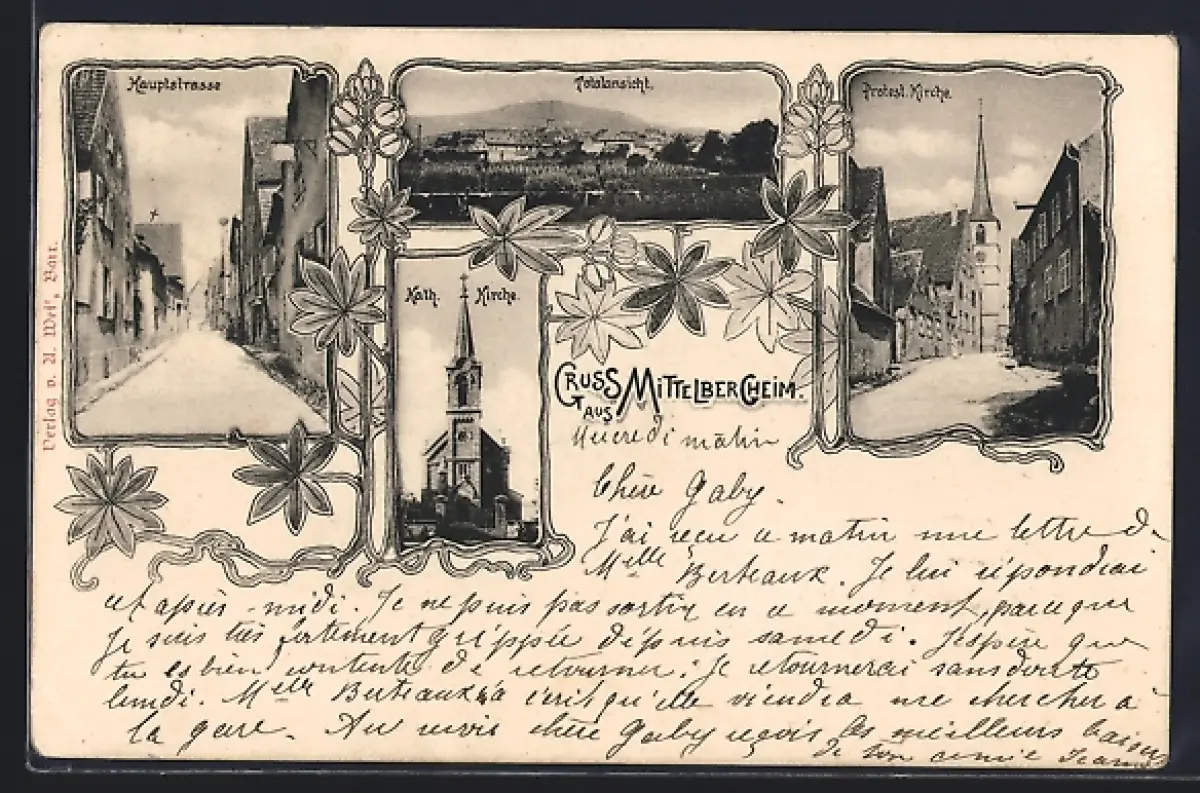 Hauptstrasse
Totalansicht.
Protest. Kirche.
Kath. Kirche.
Verlag v. A. Barr.
GRUSS AUS MITTELBERGHEIM.
Mercredi matin
Chère Gaby.
J'ai reçu ce matin une lettre de
Melle Berteaux. Je lui répondrai
cet après-midi. Je ne puis pas sortir en ce moment, parce que
je suis très fortement grippée depuis samedi. J'espère que
tu es bien contente de retourner. Je retournerai sans doute
lundi. Melle Berteaux m'a écrit qu'elle viendra me chercher à
la gare. Au revoir chère Gaby reçois les meilleurs baisers
de ton amie Jeanne